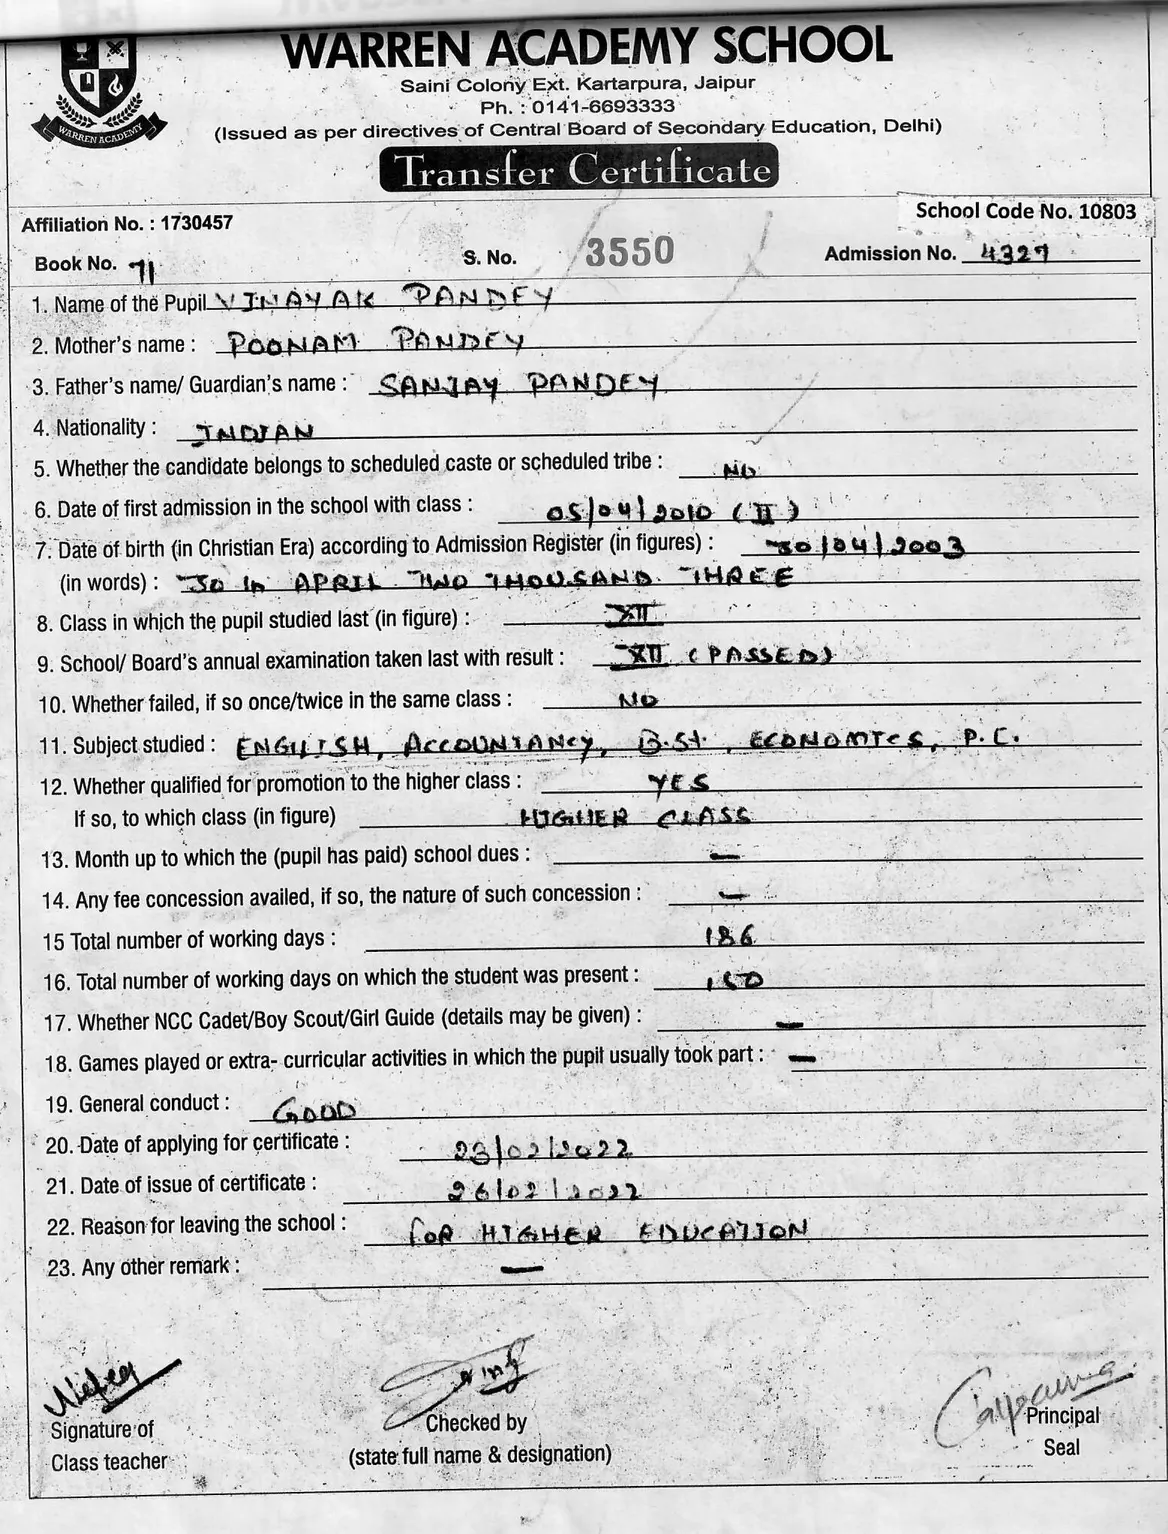 WARREN ACADEMY SCHOOL
Saini Colony Ext. Kartarpura, Jaipur
Ph. : 0141-6693333
(Issued as per directives of Central Board of Secondary Education, Delhi)
WARREN ACADEMY
Transfer Certificate
School Code No. 10803
Affiliation No. : 1730457
Book No. 71 S. No. 3550 Admission No. 4327
1. Name of the Pupil VINAYAK PANDEY
2. Mother's name : POONAM PANDEY
3. Father's name/ Guardian's name : SANJAY PANDEY
4. Nationality : INDIAN
5. Whether the candidate belongs to scheduled caste or scheduled tribe : NO
6. Date of first admission in the school with class : 05/04/2010 (II)
7. Date of birth (in Christian Era) according to Admission Register (in figures) : 30/04/2003
(in words) : 30 th APRIL TWO THOUSAND THREE
8. Class in which the pupil studied last (in figure) : XII
9. School/ Board's annual examination taken last with result : XII (PASSED)
10. Whether failed, if so once/twice in the same class : NO
11. Subject studied : ENGLISH, ACCOUNTANCY, B.St., ECONOMICS, P.C.
12. Whether qualified for promotion to the higher class : YES
If so, to which class (in figure) HIGHER CLASS
13. Month up to which the (pupil has paid) school dues : —
14. Any fee concession availed, if so, the nature of such concession : —
15 Total number of working days : 186
16. Total number of working days on which the student was present :
17. Whether NCC Cadet/Boy Scout/Girl Guide (details may be given) : —
18. Games played or extra- curricular activities in which the pupil usually took part : —
19. General conduct : GOOD
20. Date of applying for certificate : 23/02/2022
21. Date of issue of certificate : 26/02/2022
22. Reason for leaving the school : FOR HIGHER EDUCATION
23. Any other remark : —
Signature of Checked by Principal
Class teacher (state full name & designation) Seal